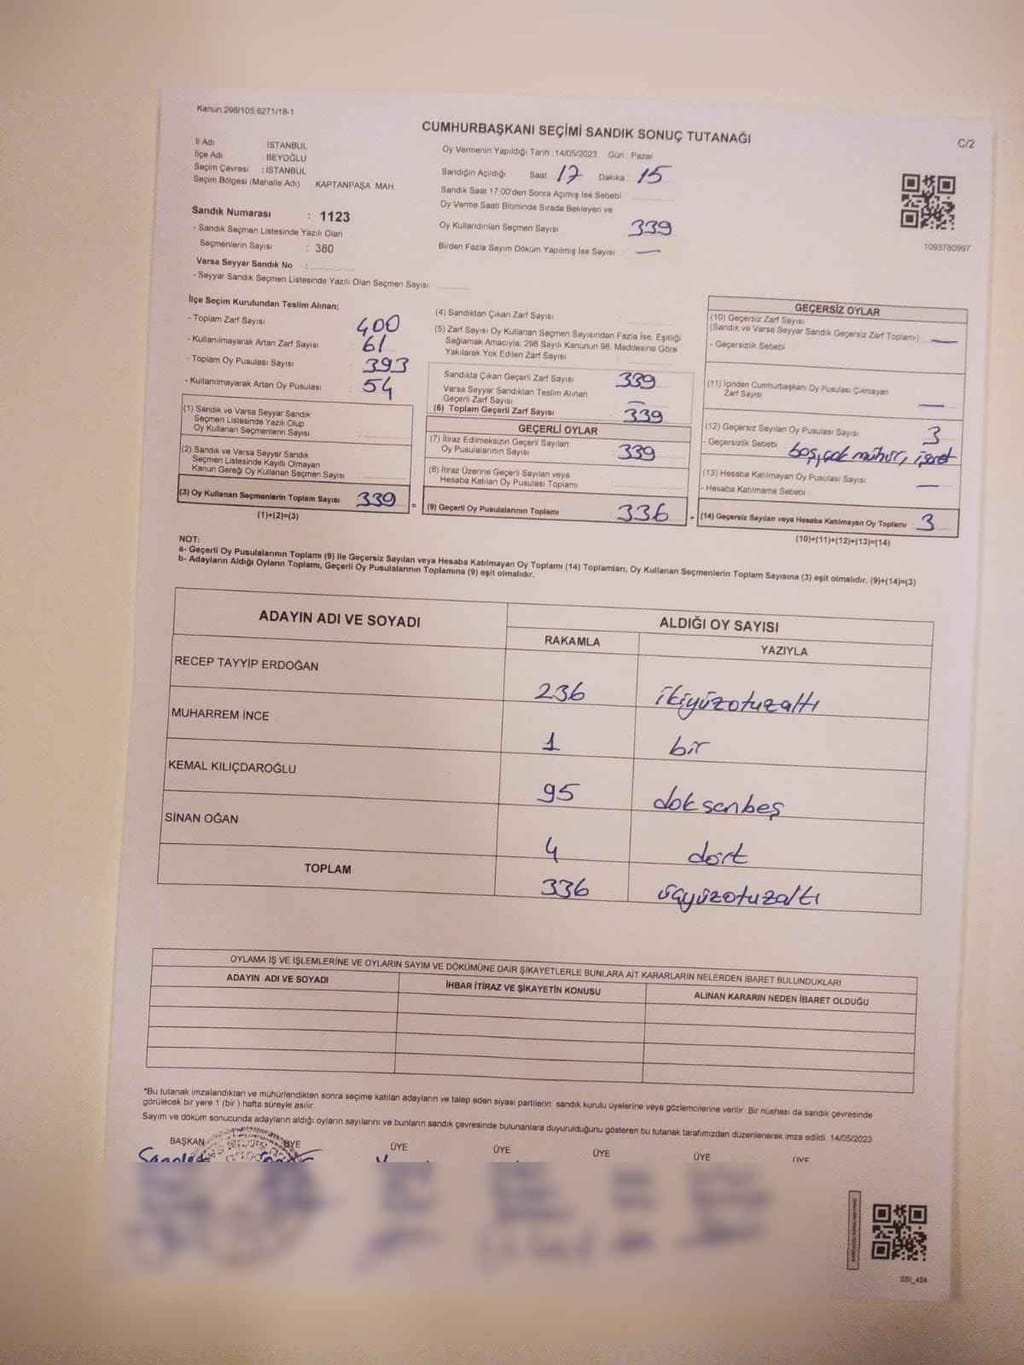 Kanun:298/105;6271/18-1
CUMHURBAŞKANI SEÇİMİ SANDIK SONUÇ TUTANAĞI
C/2
İl Adı İSTANBUL
İlçe Adı BEYOĞLU
Seçim Çevresi : İSTANBUL
Seçim Bölgesi (Mahalle Adı) KAPTANPAŞA MAH.
Sandık Numarası : 1123
- Sandık Seçmen Listesinde Yazılı Olan
Seçmenlerin Sayısı : 380
Varsa Seyyar Sandık No :
- Seyyar Sandık Seçmen Listesinde Yazılı Olan Seçmen Sayısı:
Oy Vermenin Yapıldığı Tarih :14/05/2023 Gün : Pazar
Sandığın Açıldığı Saat 17 Dakika 15
Sandık Saat 17:00'den Sonra Açılmış İse Sebebi
Oy Verme Saati Bitiminde Sırada Bekleyen ve
Oy Kullandırılan Seçmen Sayısı 339
Birden Fazla Sayım Döküm Yapılmış İse Sayısı —
1093780997
İlçe Seçim Kurulundan Teslim Alınan;
- Toplam Zarf Sayısı 400
- Kullanılmayarak Artan Zarf Sayısı 61
- Toplam Oy Pusulası Sayısı 393
- Kullanılmayarak Artan Oy Pusulası 54
(1) Sandık ve Varsa Seyyar Sandık
Seçmen Listesinde Yazılı Olup
Oy Kullanan Seçmenlerin Sayısı
(2) Sandık ve Varsa Seyyar Sandık
Seçmen Listesinde Kayıtlı Olmayan
Kanun Gereği Oy Kullanan Seçmen Sayısı
(3) Oy Kullanan Seçmenlerin Toplam Sayısı 339
(1)+(2)=(3)
(4) Sandıktan Çıkan Zarf Sayısı
(5) Zarf Sayısı Oy Kullanan Seçmen Sayısından Fazla İse, Eşitliği
Sağlamak Amacıyla; 298 Sayılı Kanunun 98. Maddesine Göre
Yakılarak Yok Edilen Zarf Sayısı
Sandıkta Çıkan Geçerli Zarf Sayısı 339
Varsa Seyyar Sandıktan Teslim Alınan
Geçerli Zarf Sayısı —
(6) Toplam Geçerli Zarf Sayısı 339
GEÇERLİ OYLAR
(7) İtiraz Edilmeksizin Geçerli Sayılan
Oy Pusulalarının Sayısı 339
(8) İtiraz Üzerine Geçerli Sayılan veya
Hesaba Katılan Oy Pusulası Toplamı
(9) Geçerli Oy Pusulalarının Toplamı 336
GEÇERSİZ OYLAR
(10) Geçersiz Zarf Sayısı
(Sandık ve Varsa Seyyar Sandık Geçersiz Zarf Toplamı) —
- Geçersizlik Sebebi
(11) İçinden Cumhurbaşkanı Oy Pusulası Çıkmayan
Zarf Sayısı —
(12) Geçersiz Sayılan Oy Pusulası Sayısı 3
- Geçersizlik Sebebi boş, çok mühür, işaret
(13) Hesaba Katılmayan Oy Pusulası Sayısı —
- Hesaba Katılmama Sebebi
(14) Geçersiz Sayılan veya Hesaba Katılmayan Oy Toplamı 3
(10)+(11)+(12)+(13)=(14)
NOT:
a- Geçerli Oy Pusulalarının Toplamı (9) ile Geçersiz Sayılan veya Hesaba Katılmayan Oy Toplamı (14) Toplamları, Oy Kullanan Seçmenlerin Toplam Sayısına (3) eşit olmalıdır. (9)+(14)=(3)
b- Adayların Aldığı Oyların Toplamı, Geçerli Oy Pusulalarının Toplamına (9) eşit olmalıdır.
ADAYIN ADI VE SOYADI ALDIĞI OY SAYISI
RAKAMLA YAZIYLA
RECEP TAYYİP ERDOĞAN 236 ikiyüzotuzaltı
MUHARREM İNCE 1 bir
KEMAL KILIÇDAROĞLU 95 doksanbeş
SİNAN OĞAN 4 dört
TOPLAM 336 üçyüzotuzaltı
OYLAMA İŞ VE İŞLEMLERİNE VE OYLARIN SAYIM VE DÖKÜMÜNE DAİR ŞİKAYETLERLE BUNLARA AİT KARARLARIN NELERDEN İBARET BULUNDUKLARI
ADAYIN ADI VE SOYADI İHBAR İTİRAZ VE ŞİKAYETİN KONUSU ALINAN KARARIN NEDEN İBARET OLDUĞU
*Bu tutanak imzalandıktan ve mühürlendikten sonra seçime katılan adayların ve talep eden siyasi partilerin sandık kurulu üyelerine veya gözlemcilerine verilir. Bir nüshası da sandık çevresinde
görülecek bir yere 1 (bir) hafta süreyle asılır.
Sayım ve döküm sonucunda adayların aldığı oyların sayılarını ve bunların sandık çevresinde bulunanlara duyurulduğunu gösteren bu tutanak tarafımızdan düzenlenerek imza edildi. 14/05/2023
BAŞKAN ÜYE ÜYE ÜYE ÜYE ÜYE ÜYE
SSI_404